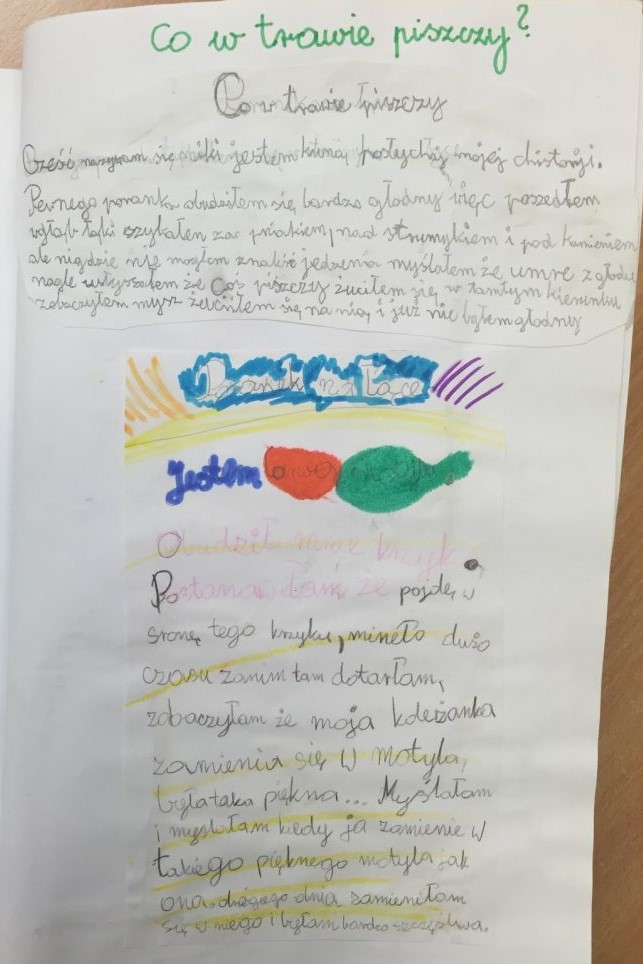 Co w trawie piszczy?
Co w trawie piszczy
Cześć nazywam się miki jestem kuną posłuchaj mojej chistorji.
Pewnego poranka obudziłem się bardzo głodny więc poszedłem
wgłąb łąki szykałem za pniakiem, nad strumykiem i pod kamieniem
ale nigdzie nie mogłem znaliść jedzenia myślałem że umre z głodu
nagle usłyszałem że Coś piszczy żuciłem się w tamtym kierunku
zobaczyłem mysz żuciłem się na nią i już nie byłem głodny
Poranek na łące
Jestem larwą
Obudził mnie krzyk.
Postanawiłam że pojdę w
stronę tego krzyku, mineło dużo
czasu zanim tam dotarłam,
zobaczyłam że moja koleżanka
zamienia się w motyla,
była taka piękna... Myślałam
i myslałam kiedy ja zamienie w
takiego pięknego motyla jak
ona. drógiego dnia zamieniłam
się w niego i byłam bardzo szczęśliwa.